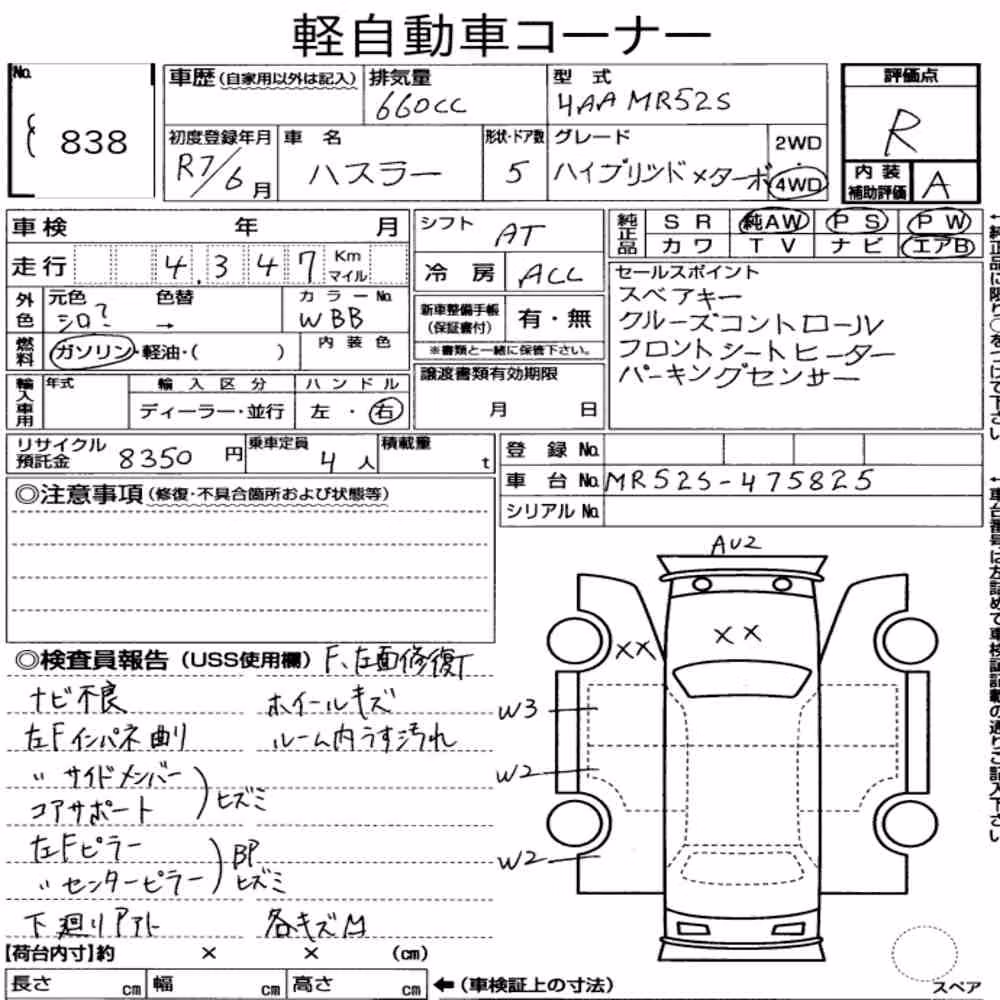 軽自動車コーナー
No. 838
車歴 (自家用以外は記入)
排気量 660cc
型式 4AA MR52S
評価点 R
初度登録年月 R7/6月
車名 ハスラー
形状・ドア数 5
グレード ハイブリッド×ターボ
2WD・4WD
内装補助評価 A
車検 年 月
走行 4,347 Km マイル
外色 元色 シロ? 色替 →
カラーNo. WBB
燃料 ガソリン・軽油・( )
内装色
輸入車用 年式 輸入区分 ディーラー・並行
ハンドル 左・右
シフト AT
冷房 ACC
新車整備手帳(保証書付) 有・無
※書類と一緒に保管下さい。
譲渡書類有効期限
月 日
純正品 SR 純AW PS PW
カワ TV ナビ エアB
セールスポイント
スペアキー
クルーズコントロール
フロントシートヒーター
パーキングセンサー
←純正品に限り○をつけて下さい
リサイクル預託金 8350円
乗車定員 4人
積載量 t
登録No.
車台No. MR52S-475825
シリアルNo.
←車台番号は左詰めで車検証記載の通りご記入下さい
◎注意事項(修復・不具合箇所および状態等)
◎検査員報告(USS使用欄) F、左面修復
ナビ不良 ホイールキズ
左Fインパネ曲り ルーム内うす汚れ
〃 サイドメンバー
コアサポート ) ヒズミ
左Fピラー
〃 センターピラー ) BP ヒズミ
下廻りアト 各キズM
AU2
XX
XX
W3
W2
W2
スペア
【荷台内寸】約 × × (cm)
長さ cm 幅 cm 高さ cm ←(車検証上の寸法)